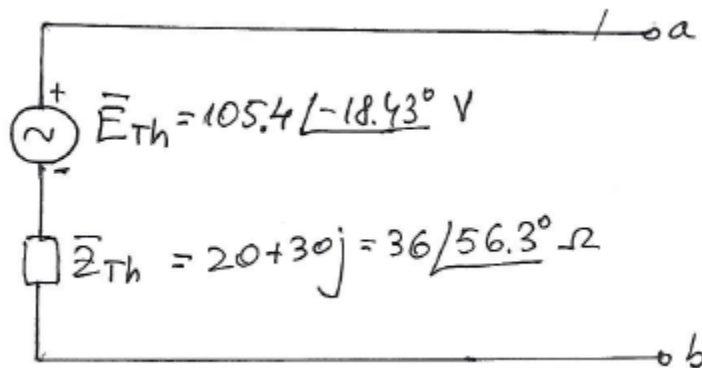 a
+
~
-
E̅Th = 105.4 ∠-18.43° V
Z̅Th = 20+30j = 36 ∠56.3° Ω
b